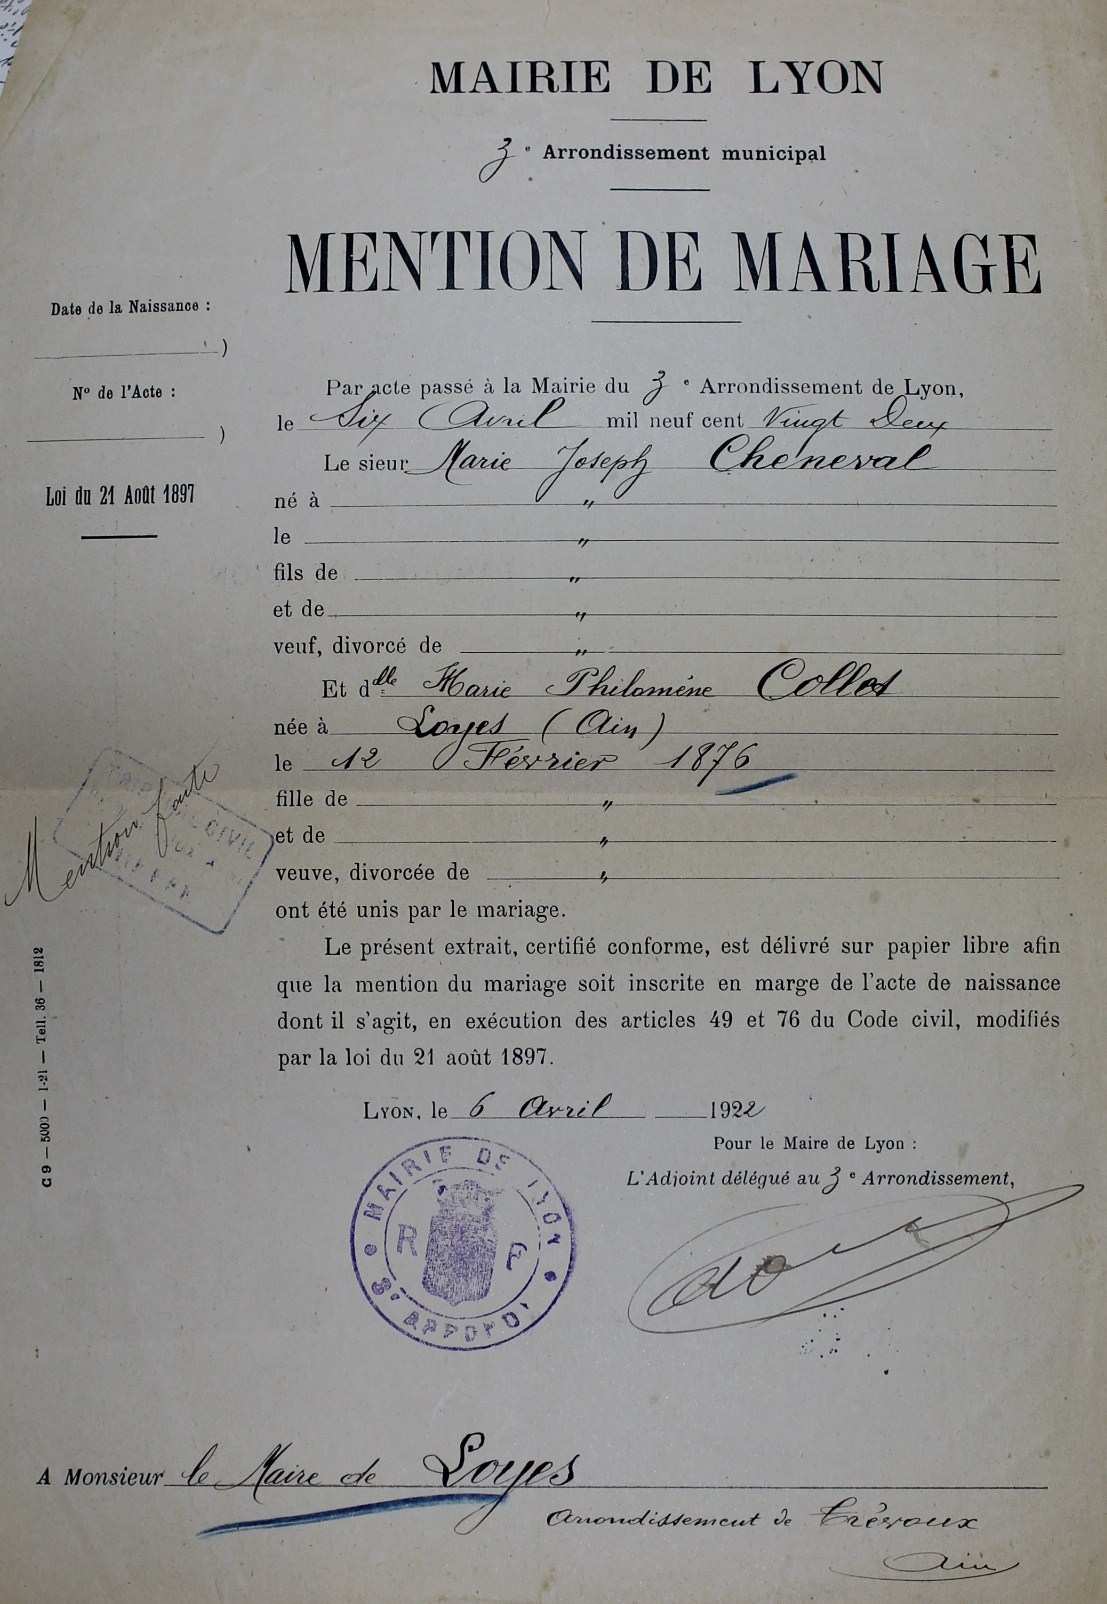 MAIRIE DE LYON
3e Arrondissement municipal
MENTION DE MARIAGE
Date de la Naissance :
)
No de l'Acte :
)
Loi du 21 Août 1897
Par acte passé à la Mairie du 3e Arrondissement de Lyon,
le Six Avril mil neuf cent Vingt Deux
Le sieur Marie Joseph Cheneval
né à "
le "
fils de "
et de "
veuf, divorcé de "
Et dlle Marie Philomène Collet
née à Loyes (Ain)
le 12 Février 1876
fille de "
et de "
veuve, divorcée de "
ont été unis par le mariage.
Mention faite
TRIBUNAL CIVIL
Le présent extrait, certifié conforme, est délivré sur papier libre afin
que la mention du mariage soit inscrite en marge de l'acte de naissance
dont il s'agit, en exécution des articles 49 et 76 du Code civil, modifiés
par la loi du 21 août 1897.
C 9 — 500) — 1-21 — Tell. 36 — 1812
LYON, le 6 Avril 1922
Pour le Maire de Lyon :
L'Adjoint délégué au 3e Arrondissement,
MAIRIE DE LYON
R F
3e ARRONDt
A Monsieur le Maire de Loyes
Arrondissement de Trévoux
Ain